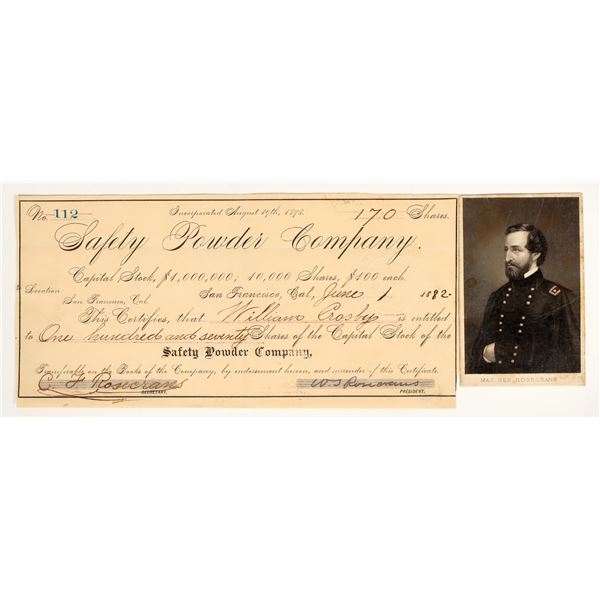 No. 112 Incorporated August 19th, 1878. 170 Shares.
Safety Powder Company.
Capital Stock, $1,000,000; 10,000 Shares, $100 each.
Location
San Francisco, Cal. San Francisco, Cal., June 1 1882
This Certifies, that William Crosby is entitled
to One hundred and seventy Shares of the Capital Stock of the
Safety Powder Company,
Transferable on the Books of the Company, by endorsement hereon, and surrender of this Certificate.
C. F. Rosecrans W S Rosecrans
SECRETARY. PRESIDENT.
MAJ. GEN. ROSECRANS